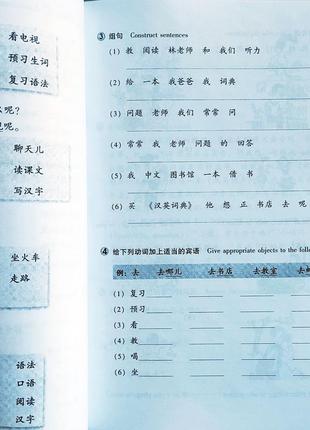 看电视
预习生词
复习语法
呢?
呢。
聊天儿
读课文
写汉字
坐火车
走路
语法
口语
阅读
汉字
③ 组句 Construct sentences
(1) 教 阅读 林老师 和 我们 听力
(2) 给 一本 我爸爸 我 词典
(3) 问题 老师 我们 常常 问
(4) 常常 我 老师 问题 的 回答
(5) 我 中文 图书馆 一本 借 书
(6) 买 《汉英词典》 他 想 正 书店 去 呢
④ 给下列动词加上适当的宾语 Give appropriate objects to the
例:去 去哪儿 去书店 去教室
(1) 复习
(2) 预习
(3) 看
(4) 教
(5) 喝
(6) 坐